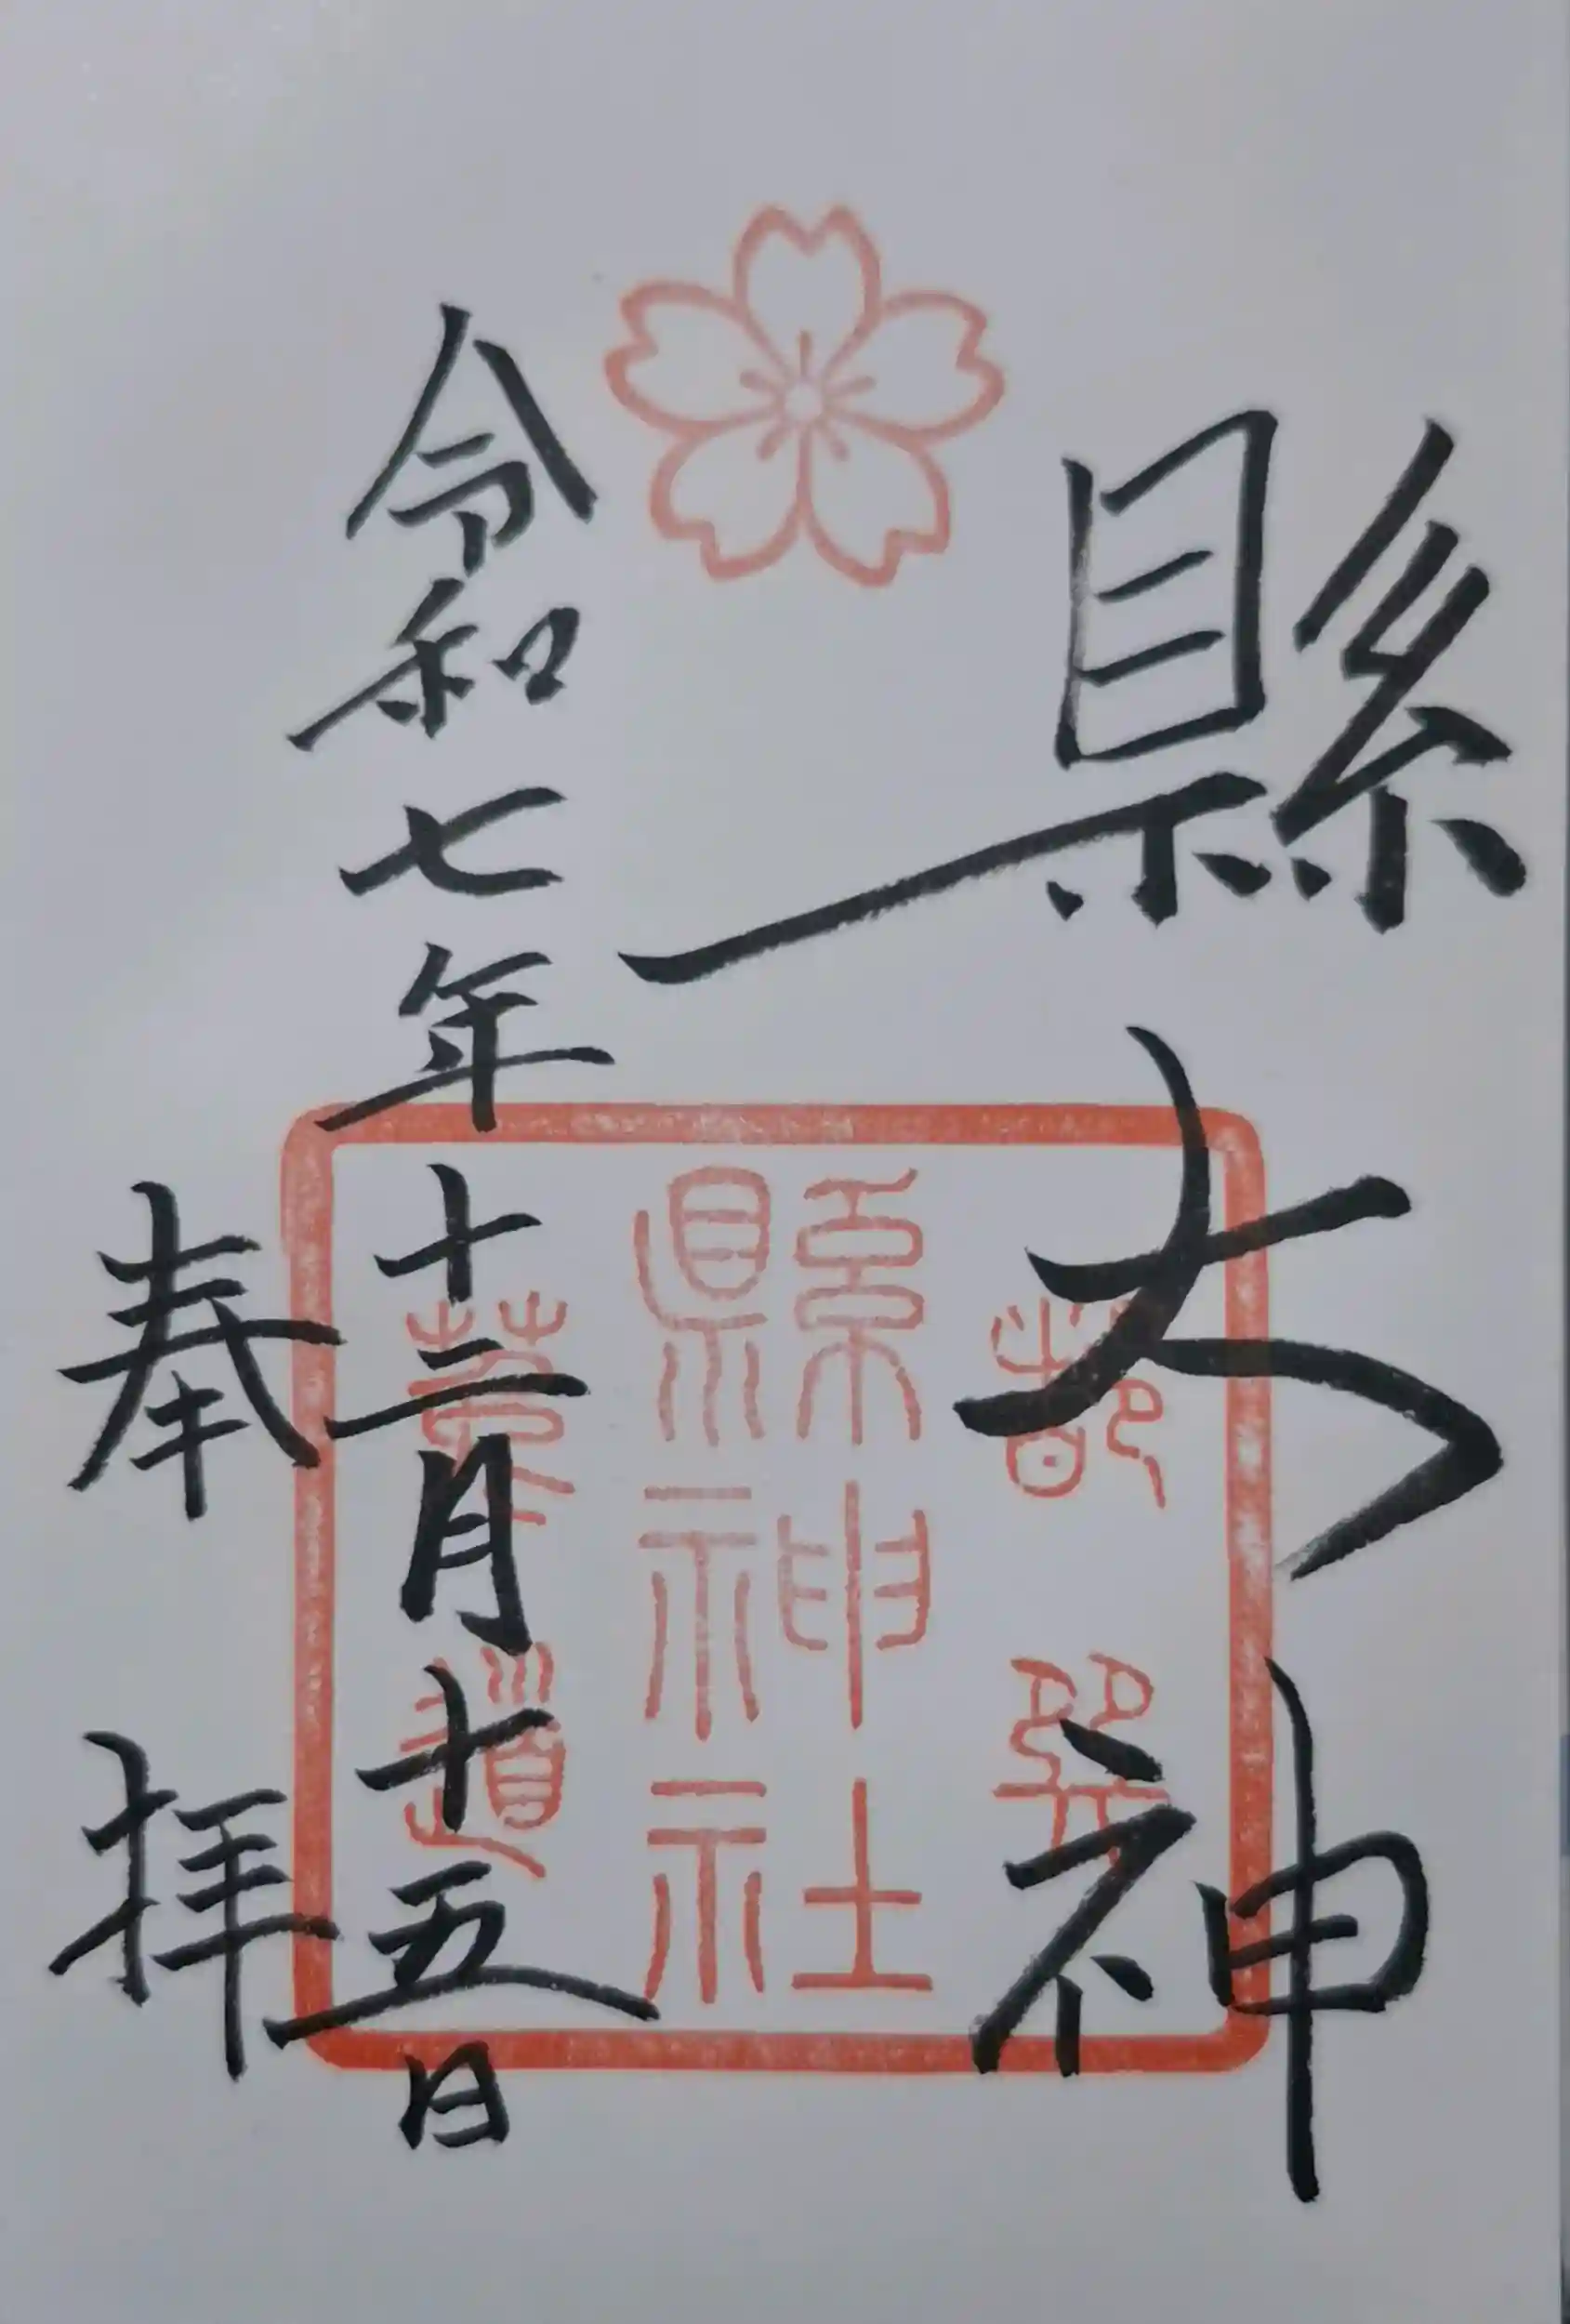 縣大神
都巽
縣神社
莵道
令和七年十二月十五日
奉拝